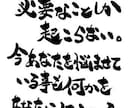 必要なことしか
起こらない。
今あなたを悩ませて
いる事も何かを